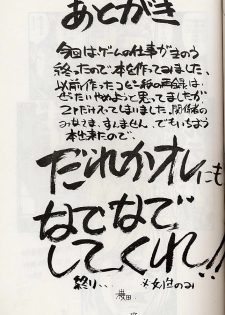 あとがき
今回はゲームの仕事がまのる
終ったので本を作ってみました、
以前作ったコピー誌の再録は
ぜったいやめようと思ってましたが
2Pだけ入ってしまいました、関係者の
みなさま、すんません、でもいちよう
本出来たので、
だれかオレにも
なでなで
してくれ!!
終り… ※女性のみ